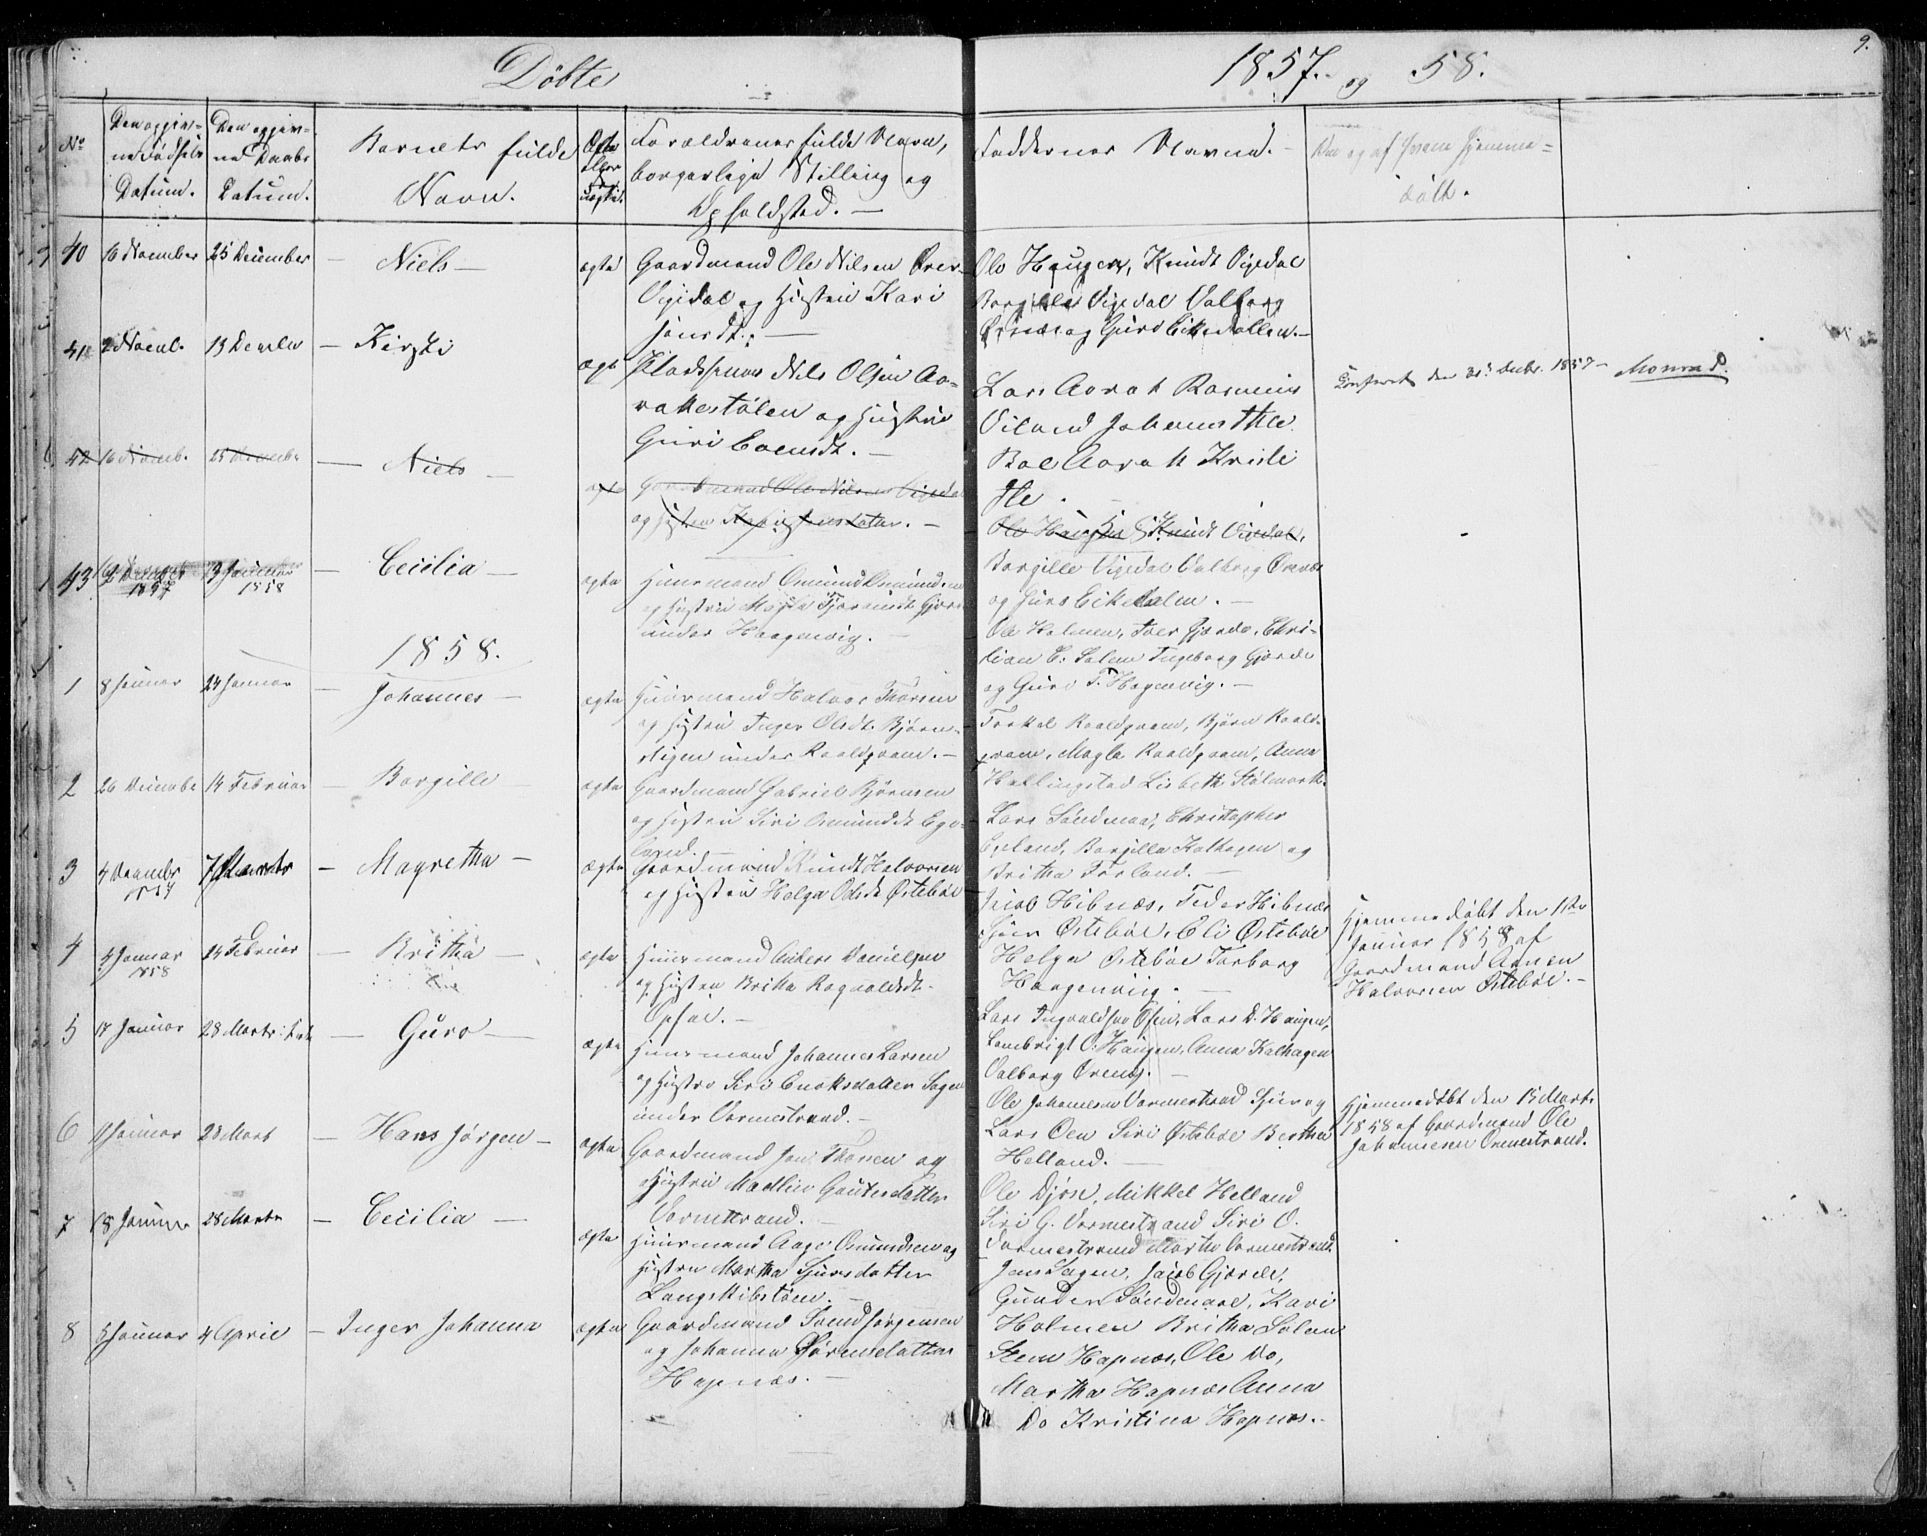 Döbte
1857. og 58.
9.
No
Den opgiv-
ne Fødsels
Datum.
Den opgiv-
ne Daabs
Datum.
Barnets fulde
Navn.
Ægte
eller
uægte.
Forældrenes fulde Navn,
borgerlige Stilling og
Opholdsted. —
Faddernes Navne. —
Naar og af hvem hjemme=
døbt.
40 16 November 25 December — Niels — ægte
Gaardmand Ole Nilsen Øvre-
Vigedal og Hustru Kari
Jonsdt. —
Ole Haugen, Knudt Vigedal
Borgille Vigedal Valborg
Ørnæs og Guro Eikedallen. —
41 2 Novemb. 13 December — Kirsti ægte
Pladssmand Nils Olsen Aa-
rakestølen og Hustru
Guri Evensdt. —
Lars Aarak Rasmus
Viland Johannes Hle
Boe Aarak Kristi
Hle.
Confereret den 31. Decbr. 1857 — Monrad.
42 16 Novemb. 25 December — Niels — ægte
Gaardmand Ole Nilsen Vigedal
og Hustru Kari Jonsdatter. —
Ole Haugen Knudt Vigedal,
Borgille Vigedal Valborg Ørnæs
og Guro Eikedalen. —
43 December 1857 3 Januar 1858 — Cecilia — ægte
Huusmand Omund Omundsen
og Hustru Magla Tjerandsdt Gjære
under Haagenvig. —
Ole Holmen, Iver Gjærde, Chri-
stian E. Solem Ingeborg Gjærde
og Guri T. Hagenvig. —
1858.
1 8 Januar 24 Januar — Johannes — ægte
Huusmand Halvor Thorsen
og Hustru Inger Olsdt. Bjørn-
stigen under Raaldqvam. —
Torkel Raaldqvam, Bjørn Raald-
qvam, Magla Raaldqvam, Anna
Hallingstad Lisbeth Stølmark.
2 26 December 14 Februar — Borgille ægte
Gaardmand Gabriel Bjørnsen
og Hustru Siri Omundsdt Ege-
land. —
Lars Sandmaa, Christopher
Egeland, Borgilla Kalhagen og
Britha Førland. —
3 4 December 1857 7 Marts — Magretha — ægte
Gaardmand Knudt Halvorsen
og Hustru Helga Odsdt Østebøe
Jacob Hibnæs, Peder Hibnæs
Sjøen Østebøe, Eli Østebøe
Helga Østebøe Torborg
Haagenvig. —
Hjemmedøbt den 1ste
Januar 1858 af
Gaardmand Aanen
Halvorsen Østebøe. —
4 4 Januar 1858 14 Februar — Britha — ægte
Huusmand Anders Danielsen
og Hustru Britta Ragnaldsdt.
Opsal. —
Lars Ingvaldsen Osen, Lars D. Haugen,
Lambrigt O. Haugen, Anna Kalhagen
Valborg Ørnæs. —
5 17 Januar 28 Marts — Guro — ægte
Huusmand Johannes Larsen
og Hustru Siri Enoksdatter Sagen
under Vormestrand. —
Ole Johannesen Vormestrand Sjur og
Lars Oen Siri Østebøe Berthe
Helland. —
Hjemmedøbt den 15 Marts
1858 af Gaardmand Ole
Johannesen Vormestrand.
6 11 Januar 28 Marts — Hans Jørgen — ægte
Gaardmand Jon Thorsen og
Hustru Madllin Gautesdatter
Vormestrand. —
Ole Djøn, Mikkel Helland
Siri G. Vormestrand Siri O.
Vormestrand Marthe Vormestrand.
7 18 Januar 28 Marts — Cecilia — ægte
Huusmand Aage Omundsen og
Hustru Martha Sjursdatter
LangeMibstøen. —
Jens Sagen, Jacob Gjærde,
Gunder Søndenaae, Kari
Holmen Britha Solem
8 5 Januar 4 April — Inger Johanna ægte
Gaardmand Svend Jørgensen
og Johanna Sørensdatter
Hapnæs. —
Steen Hapnæs, Ole Do,
Martha Hapnæs Anna
Do Kristina Hapnæs. —